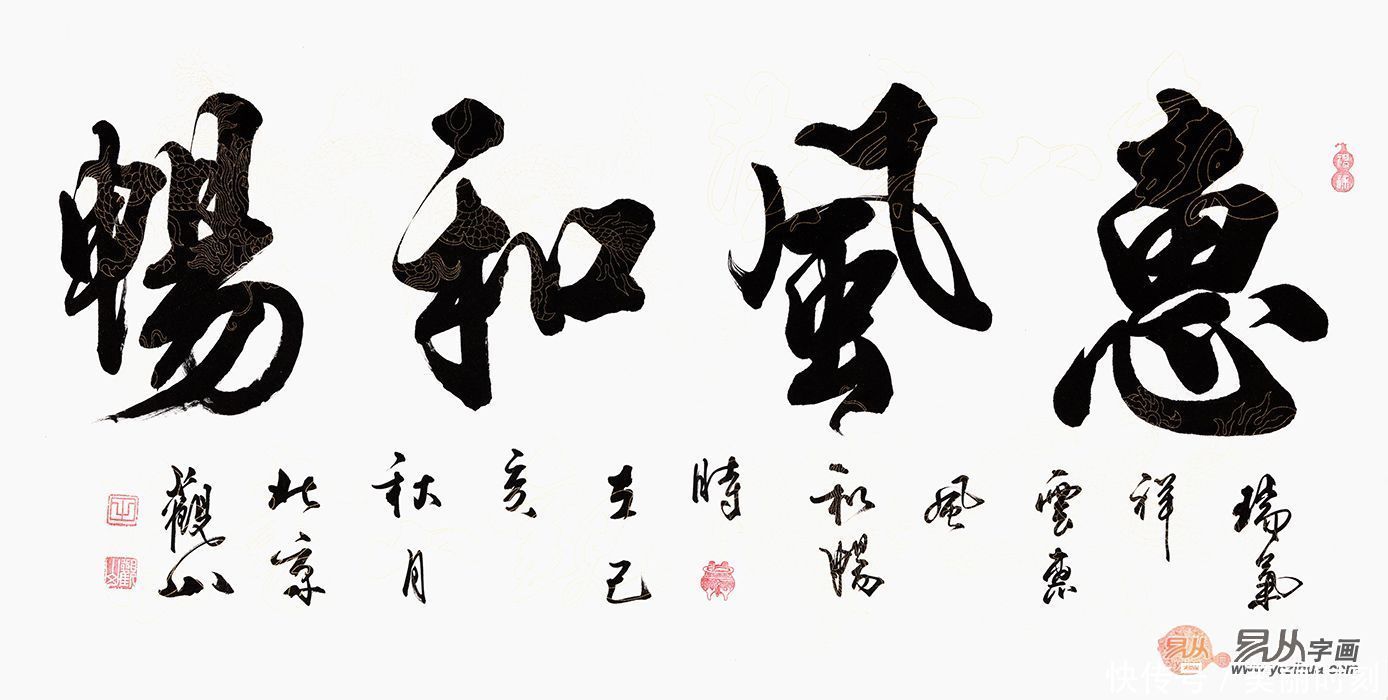 惠風和暢
瑞氣
祥
雲惠
風
和暢
時
在己
亥
秋月
北京
觀山
易从字画
www.yczihua.com
快传号 / 美丽时刻